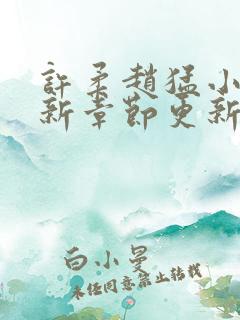 許柔趙猛小
新章節更新
白小曼
未經同意禁止轉載